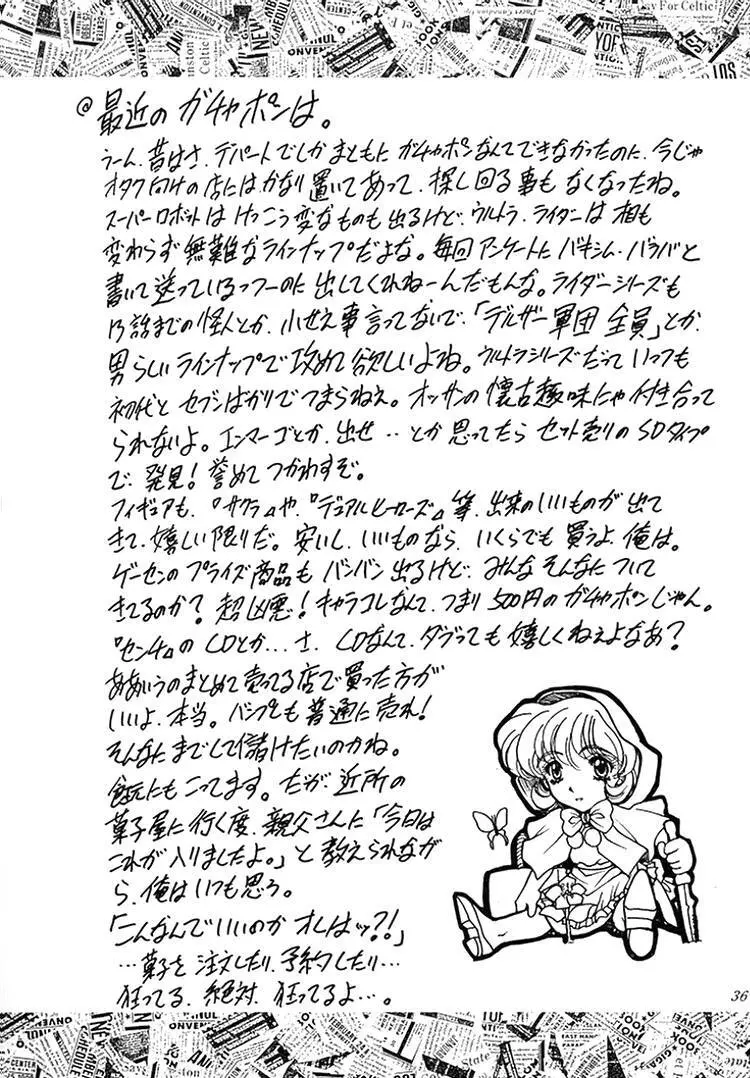 @最近のガチャポンは。
うーん、昔はさ、デパートでしかまともにガチャポンなんてできなかったのに、今じゃ
オタク向けの店にはかなり置いてあって、探し回る事もなくなったね。
スーパーロボットはけっこう変なものも出るけど、ウルトラ、ライダーは相も
変わらず無難なラインナップだよな。毎回アンケートにバキシム・バラバと
書いて送っているっつーのに出してくれねーんだもんな。ライダーシリーズも
13話までの怪人とか、小せえ事言ってないで、「デルザー軍団 全員」とか、
男らしいラインナップで攻めて欲しいよね。ウルトラシリーズだっていっつも
初代とセブンばかりでつまらねえ。オッサンの懐古趣味にゃ付き合って
られないよ。エンマーゴとか、出せ‥とか思ってたらセット売りのSDタイプ
で、発見!誉めてつかわすぞ。
フィギュアも、『サクラ』や、『デュアルヒーローズ』等、出来のいいものが出て
きて、嬉しい限りだ。安いし、いいものなら、いくらでも買うよ、俺は。
ゲーセンのプライズ商品もバンバン出るけど、みんなそんなについて
きてるのか?超凶悪!キャラコレなんて、つまり500円のガチャポンじゃん。
『センチ』のCDとか...さ、CDなんて、ダブっても嬉しくねえよなあ?
ああいうのまとめて売ってる店で買った方が
いいよ、本当。バンプレも普通に売れ!
そんなにまでして儲けたいのかね。
食玩にもこってます。だが、近所の
菓子屋に行く度、親父さんに「今日は
これが入りましたよ。」と教えられなが
ら、俺はいつも思う。
「こんなんでいいのかオレはッ?!」
…菓子を注文したり、予約したり…
狂ってる、絶対、狂ってるよ…。
36